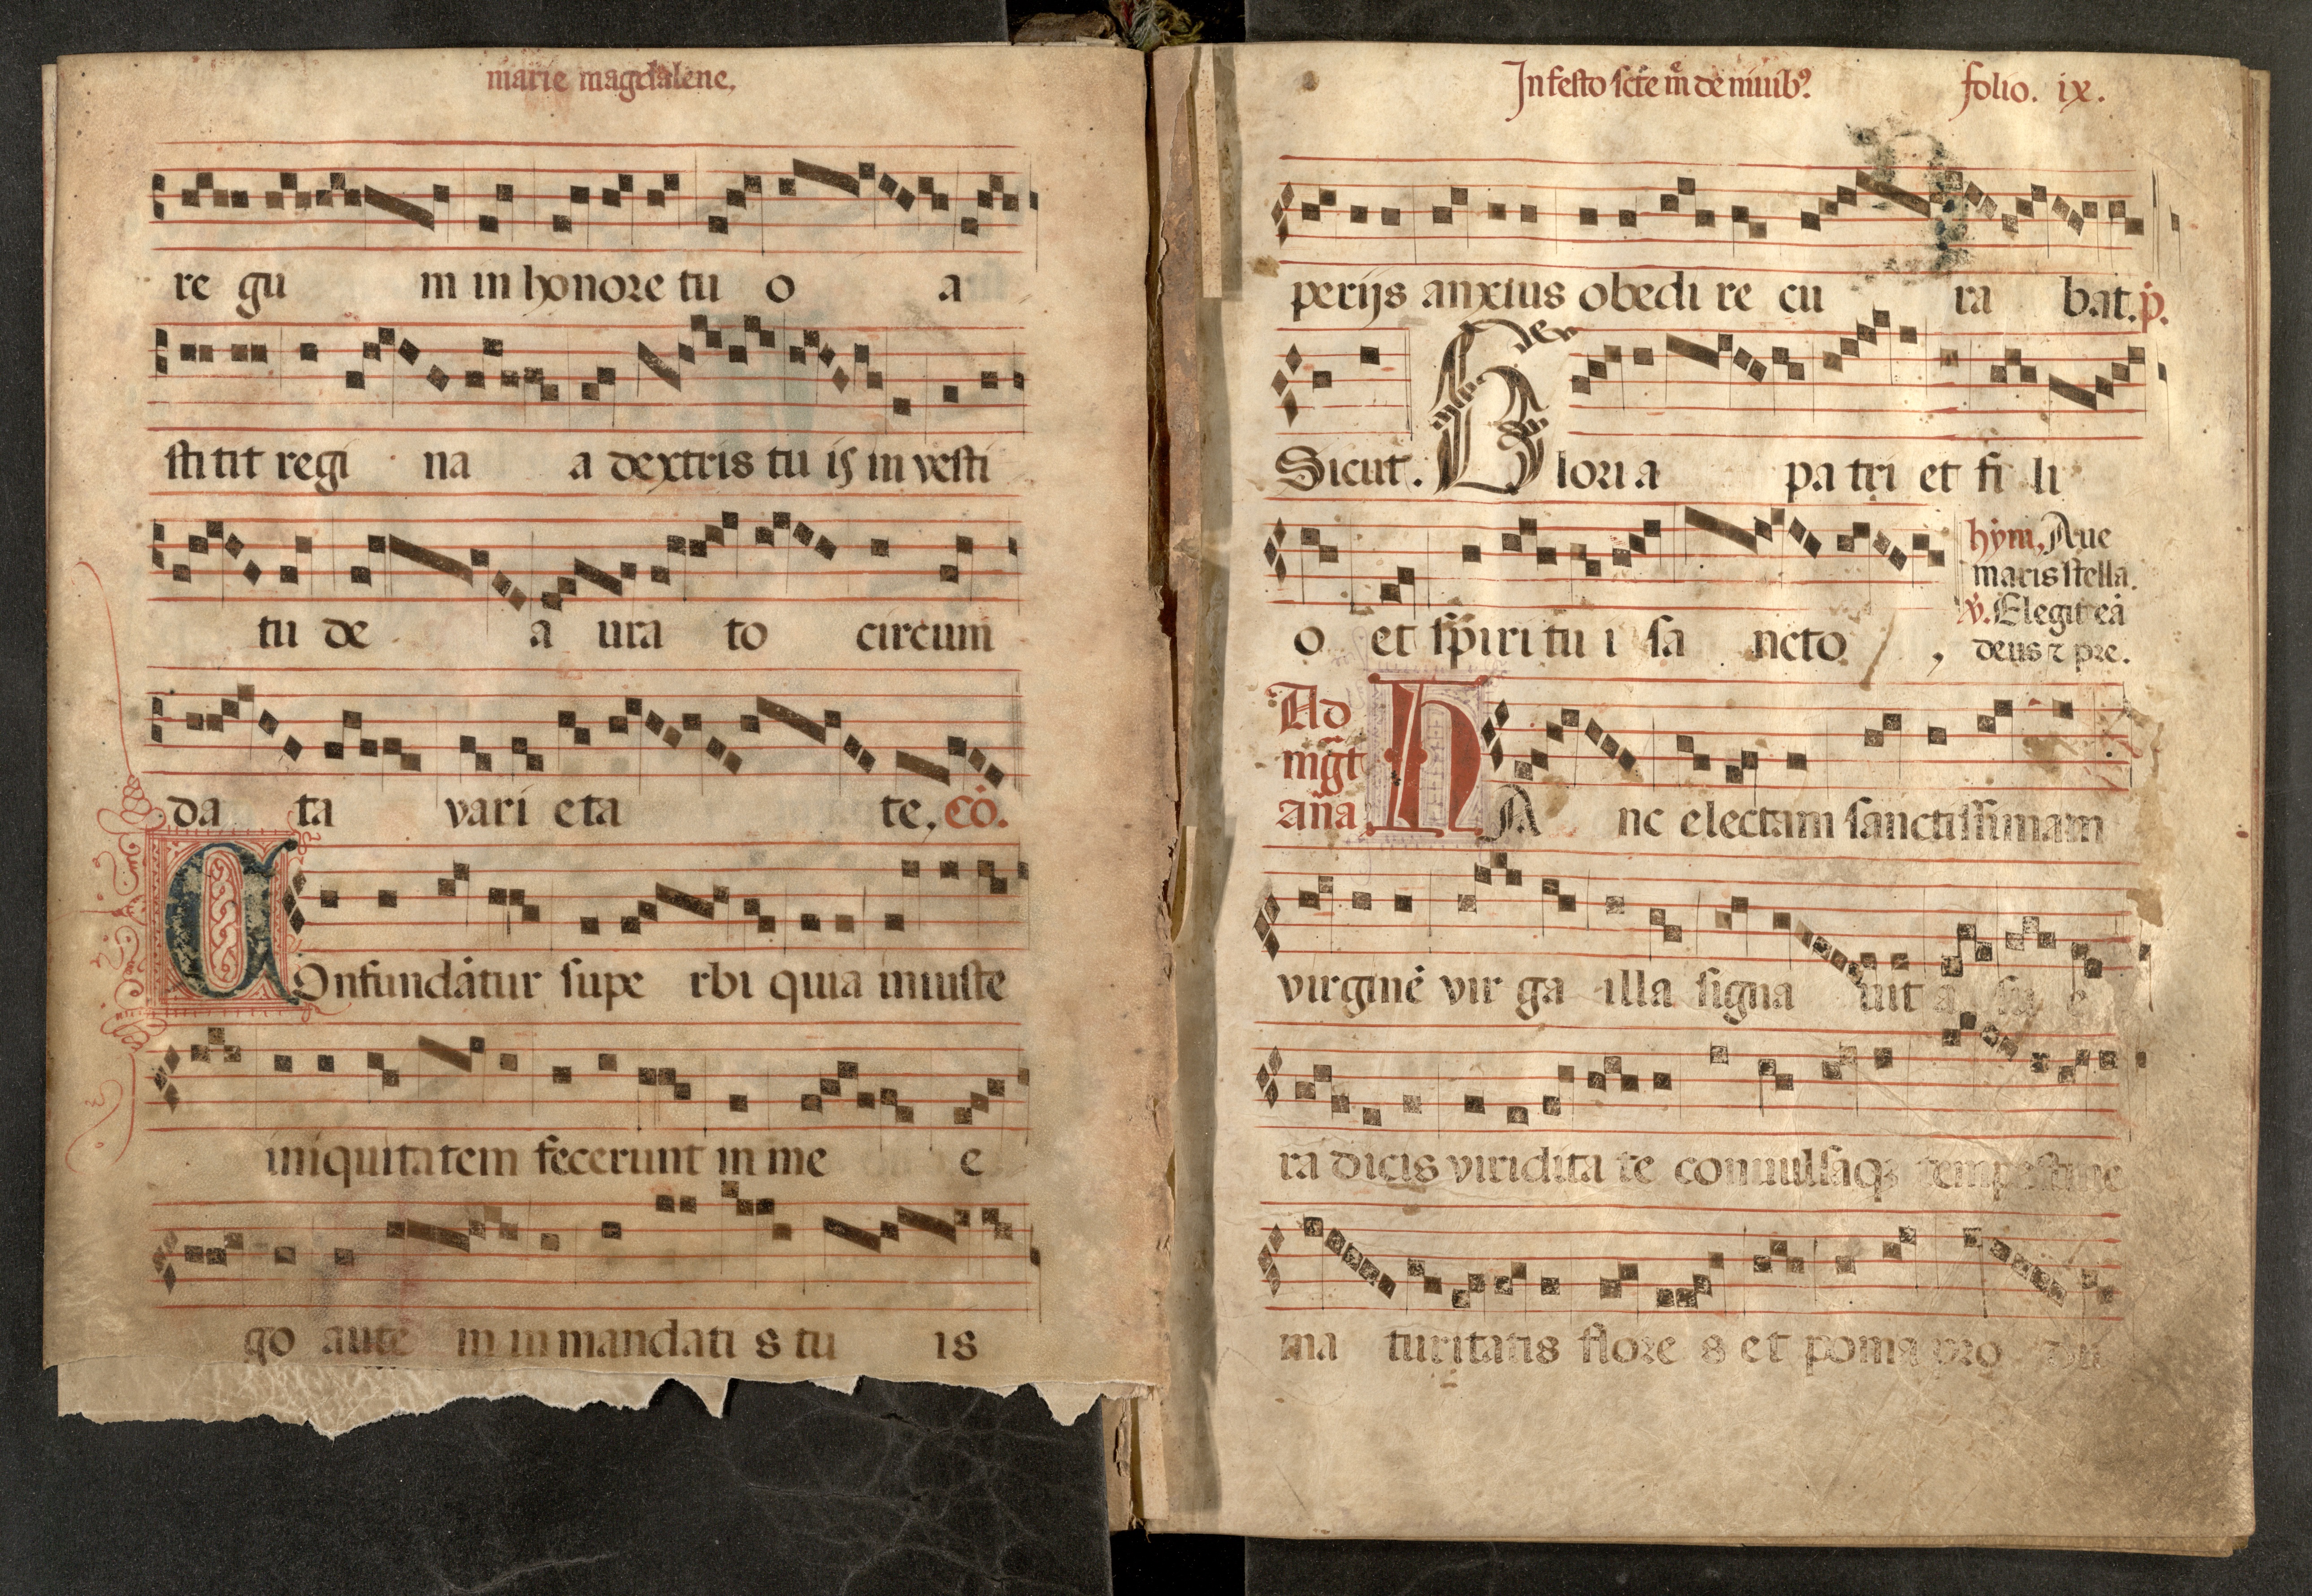 marie magdalene.
re gu m in honore tu o a
stitit regi na a dextris tu is in vesti
tu de a ura to circum
da ta vari eta te. cō.
Confundātur supe rbi quia iniuste
iniquitatem fecerunt in me e
go aute m in mandati s tu is
In festo scte m̄ de niuibꝰ. folio. ix.
perijs anxius obedi re cu ra bat. p̄.
Sicut. Gloria pa tri et fi li
o et spiri tu i sa ncto,
hym, Aue
maris stella.
℣. Elegit eā
deus ⁊ pre.
Ad
mg̅t
an̄a
HA nc electam sanctissimam
virginē vir ga illa signa uit a
ra dicis viridita te conuulsaqꝫ
ma turitatis flore s et poma pro